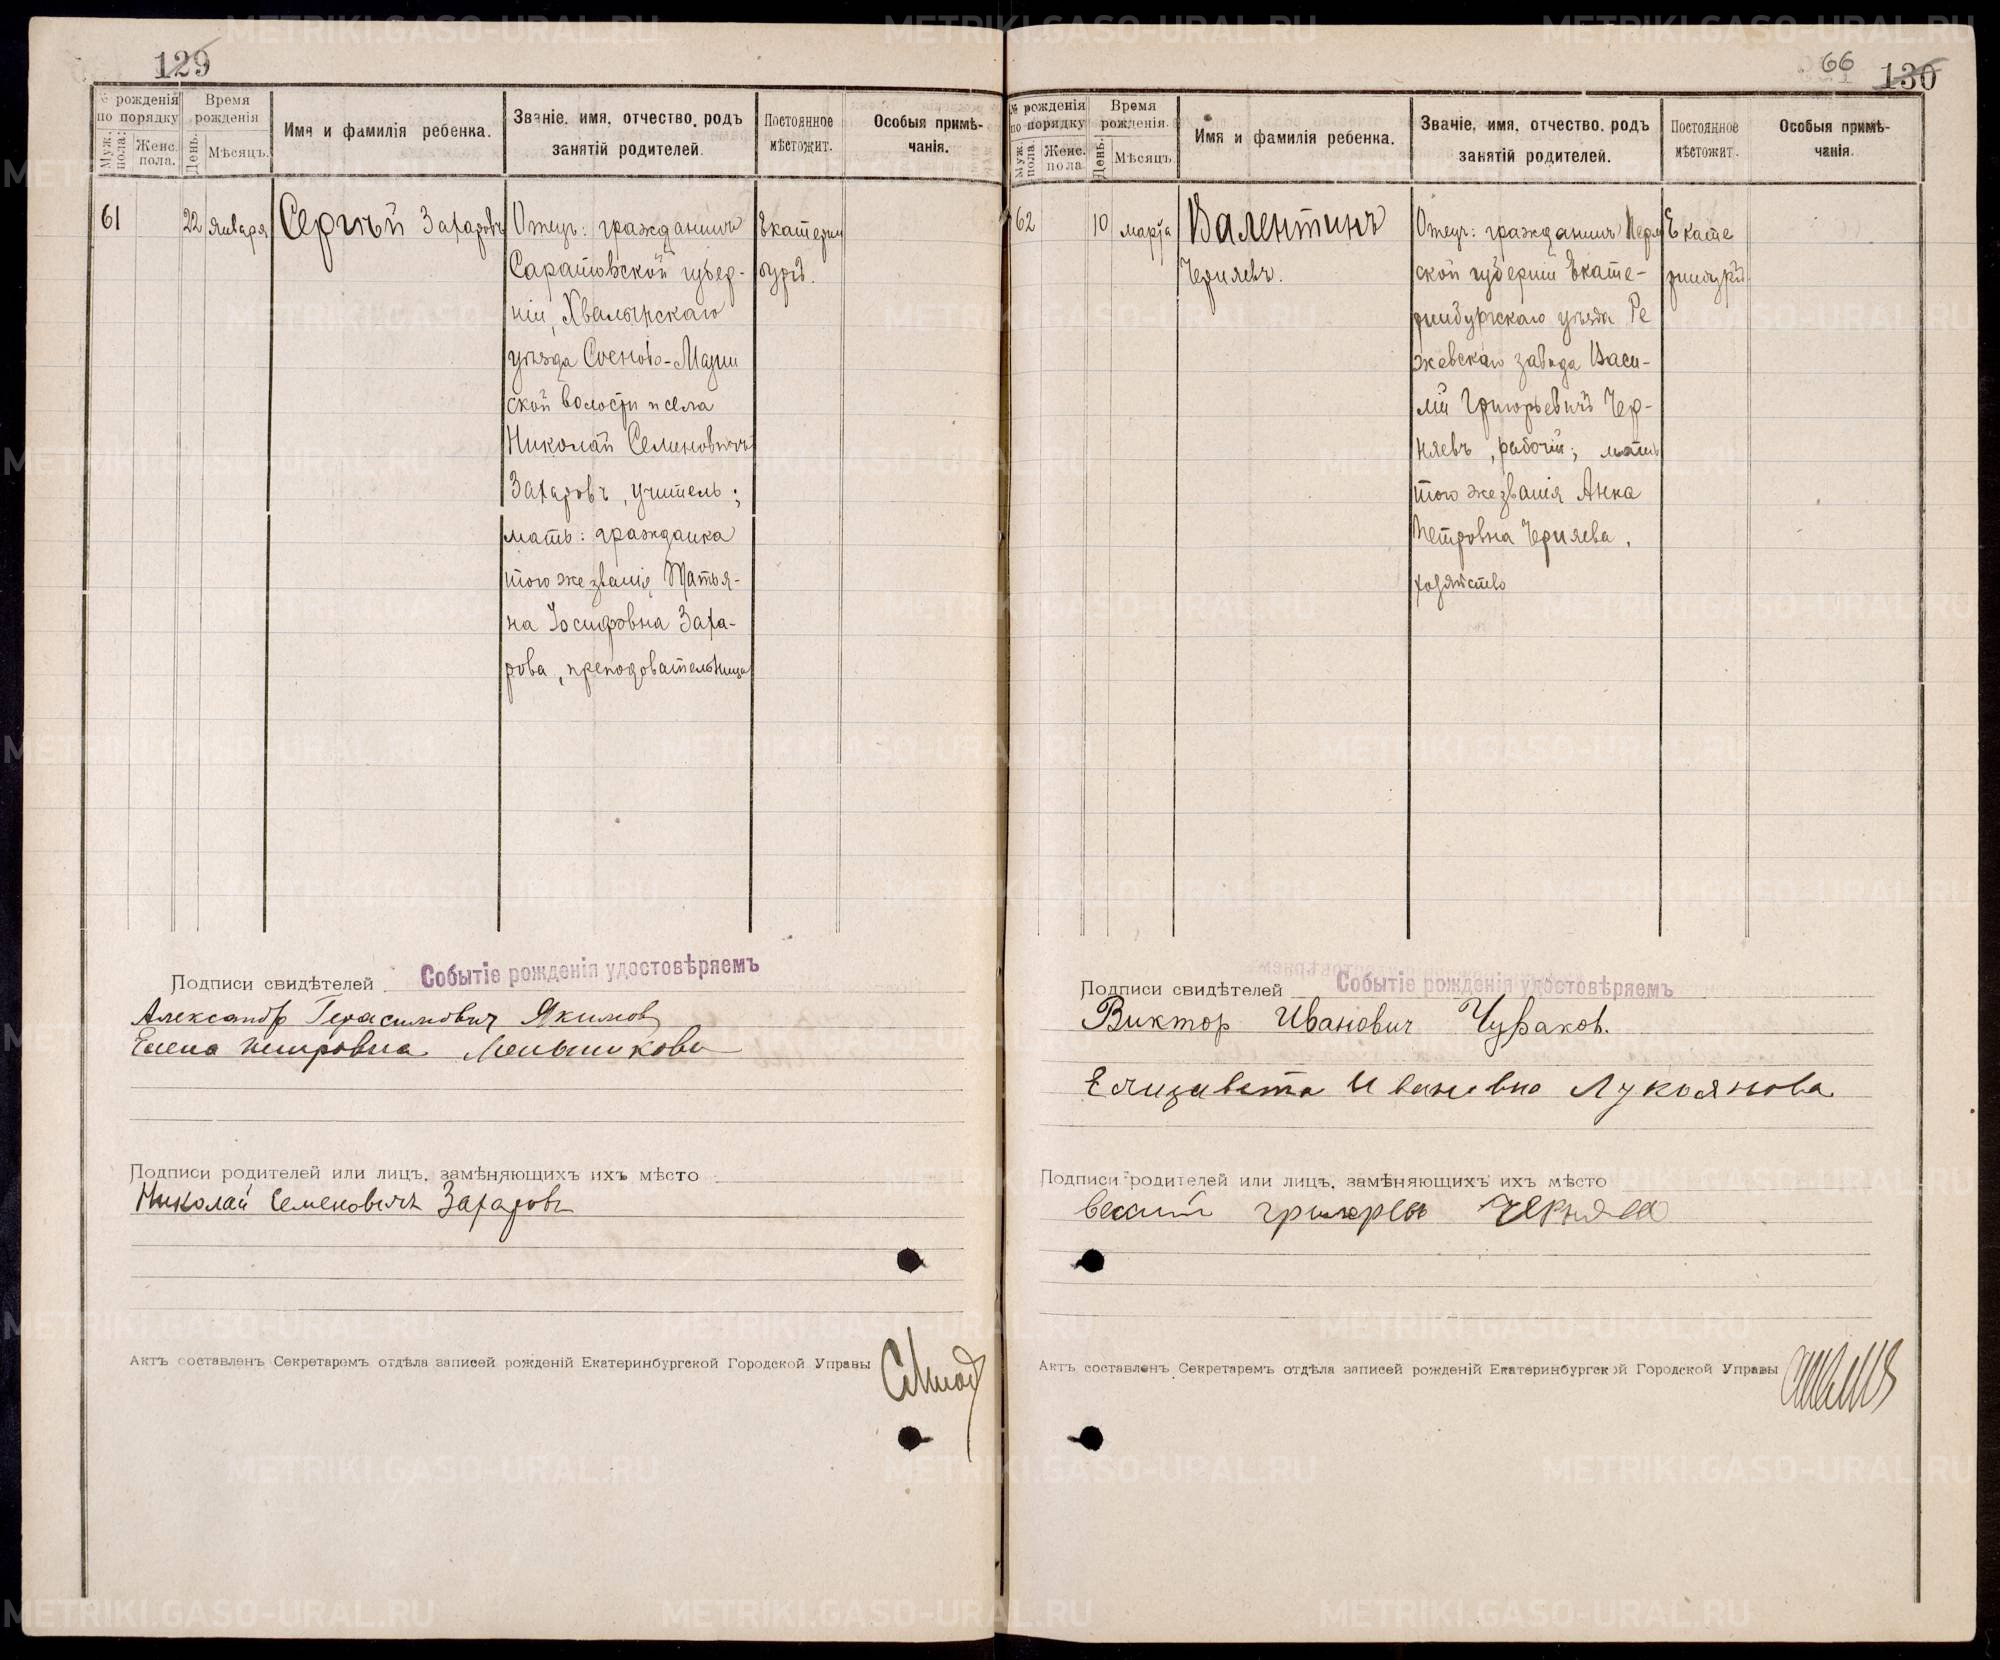 129
№ рожденія по порядку
Муж. пола.
Женс. пола.
Время рожденія
День.
Мѣсяцъ.
Имя и фамилія ребенка.
Званіе, имя, отчество, родъ
занятій родителей.
Постоянное
мѣстожит.
Особыя примѣ-
чанія.
61
22 января
Сергѣй Захаровъ
Отецъ: гражданинъ
Саратовской губер-
ніи, Хвалынскаго
уѣзда
ской волости и села
Николай Семеновичъ
Захаровъ, учитель;
мать: гражданка
того же званія Татья-
на Іосифовна Заха-
рова, преподовательница
Екатерин
бургъ.
Подписи свидѣтелей
Событіе рожденія удостовѣряемъ
Александр Герасимович Якимов
Елена Петровна Меньшикова
Подписи родителей или лицъ, замѣняющихъ ихъ мѣсто
Николай Семеновичъ Захаровъ
Актъ составленъ Секретаремъ отдѣла записей рожденій Екатеринбургской Городской Управы
66
130
№ рожденія по порядку
Муж. пола.
Женс. пола
Время рожденія.
День.
Мѣсяцъ.
Имя и фамилія ребенка.
Званіе, имя, отчество, родъ
занятій родителей.
Постоянное
мѣстожит.
Особыя примѣ-
чанія.
62
10 марта
Валентинъ
Черняевъ.
Отецъ: гражданинъ Перм
ской губерніи Екате-
ринбургскаго уѣзда Ре
жевскаго завода Васи-
лій Григорьевичъ Чер-
няевъ, рабочій; мать
того же званія Анна
Петровна Черняева,
хозяйство
Екате
ринбургъ
Подписи свидѣтелей
Событіе рожденія удостовѣряемъ
Виктор Иванович Чураков.
Елизавета Ивановна Лукоянова
Подписи родителей или лицъ, замѣняющихъ ихъ мѣсто
Актъ составленъ Секретаремъ отдѣла записей рожденій Екатеринбургской Городской Управы
METRIKI.GASO-URAL.RU